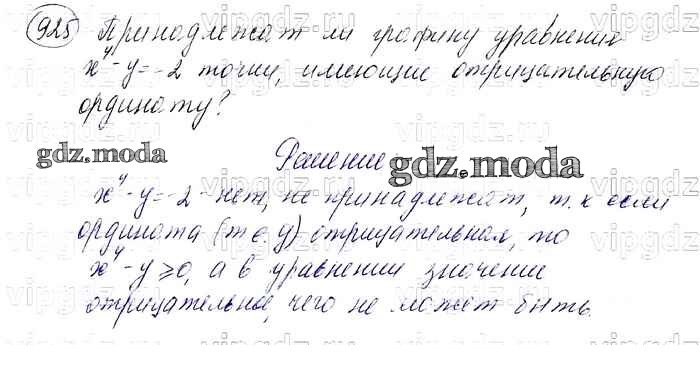 925 Принадлежат ли графику уравнения
x⁴-y=-2 точки, имеющие отрицательную
ординату?
gdz.moda
Решение
gdz.moda
x⁴-y=-2 - нет, не принадлежат, т.к если
ордината (т.е. y) отрицательная, то
x⁴-y≥0, а в уравнении значение
отрицательное, чего не может быть.